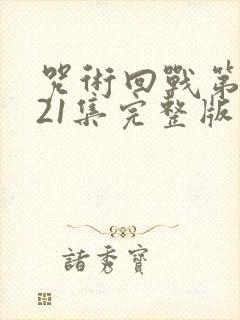 咒術回戰第
21集完整版
諸秀寶